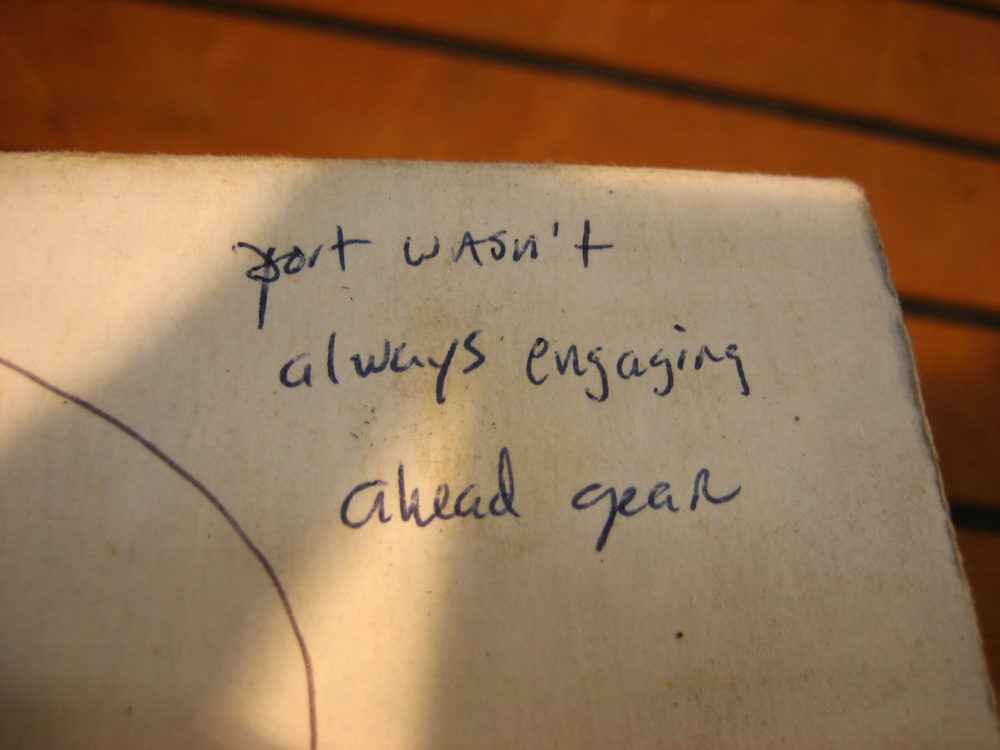 port wasn't
always engaging
ahead gear